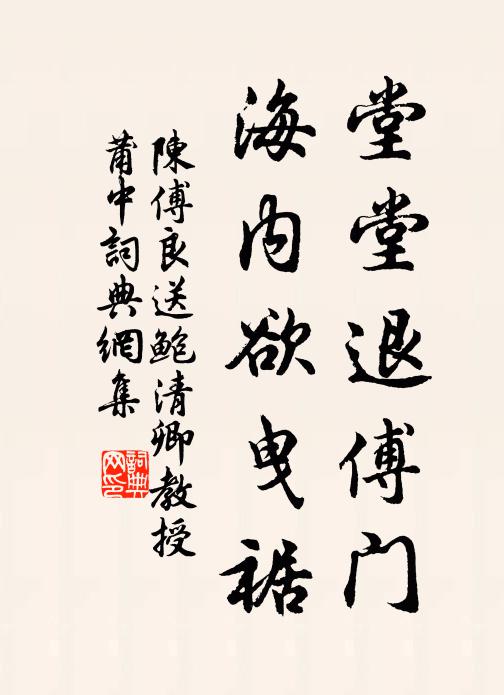 堂堂退傅門
海内欲曳裾
陳傅良送鮑清卿教授
莆中詞典網集
詞典网印